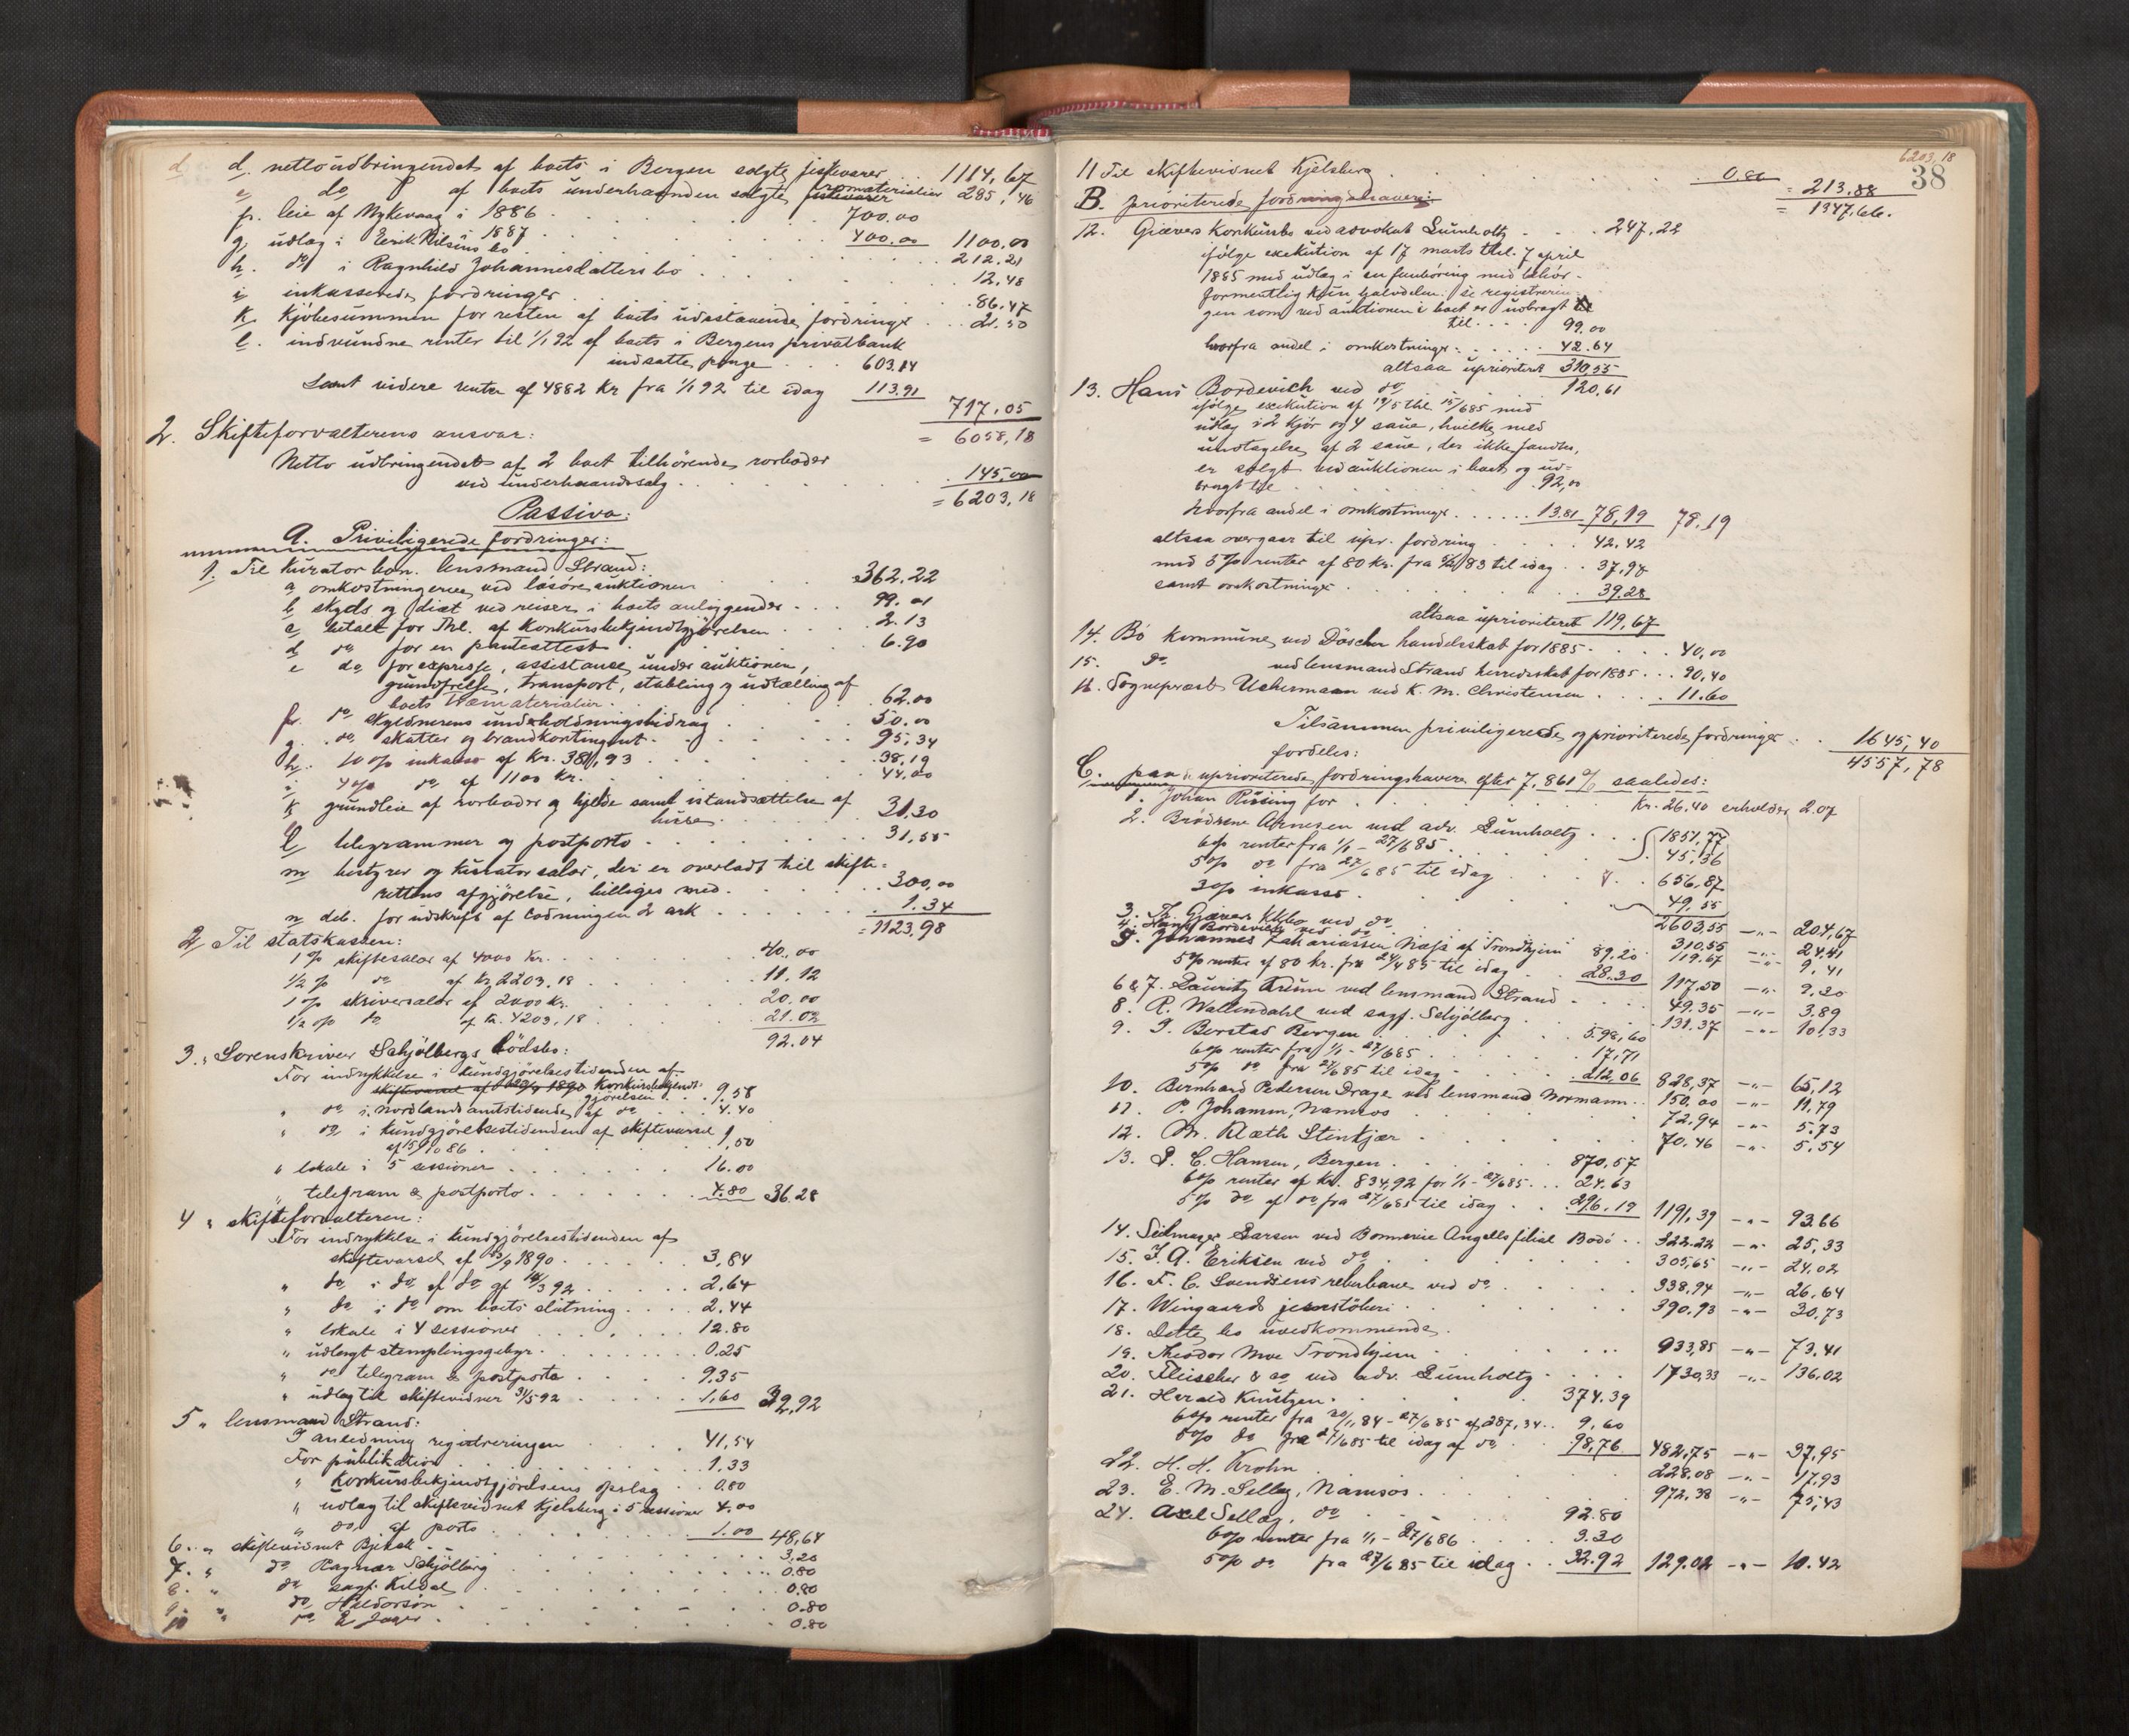 d. nettoudbringendet af boets i Bergen solgte fiskevarer . . 1114,67
e. do af boets underhaanden solgte fiskevarer romaterialier 285,46
f. leie af Nykevaag i 1886 . . . 700.00
" 1887 . . . 400.00 1100.00
g. udlag i Erik Nilsens bo . . . 212.21
h. do i Ragnhild Johannesdatters bo . . . 12,48
i inkasserede fordringer . . . 86.47
k. Kjøbesummen for resten af boets udestaaende fordringer . . 21.50
l. indvundne renter til 1/1 92 af boets i Bergens privatbank
indsatte penge . . 603.14
samt videre renter af 4882 kr fra 1/1 92 til idag 113.91
717.05
= 6058,18
2. Skifteforvalterens ansvar:
Netto udbringendet af 2 boet tilhörende rorboder
ved underhaandssalg . . . 145,00
= 6203,18
Passiva:
A. Priviligerede fordringer:
1. Til kurator bon. lensmand Strand:
a, omkostningerne ved lösöreauktionen . . 362.22
b, skyds og diæt ved reiser i boets anliggender . . . 99.01
c, betalt for Thl. af konkursbekjendtgjörelsen . . . 2.13
d, do for en pantattest . . . 6.90
e do for expresse, assistanse under auktionen,
grundfrelse, transport, stabling og udtælling af
boets træmaterialier . . . 62.00
f. do skyldnerens underholdningsbidrag . . . 50.00
g. do skatter og brandkontingent . . . 95,34
h. 10 o/o inkasso af kr. 381,93 . . . 38,19
i 4 o/o do af 1100 kr. . . . 44,00
k grundleie af rorboder og hjelde samt istandsættelse af
huse . . . 31.30
l, telegrammer og postporto . . . 31,55
m bestyrer og kuratorsalær, der er overladt til skifte-
rettens afgjörelse, billiges med . . . 300,00
n deb. for udskrift af lodningen 2 ark . . . 1.34
= 1123,98
2, Til statskassen:
1 o/o skiftesalær af 4000 kr. . . . 40,00
1/2 o/o do af kr 2203.18 . . . 11.12
1 o/o skriversalær af 2000 kr. . . . 20.00
1/2 o/o do af kr. 4203,18 . . . 21.02
92.04
3. " Sorenskriver Schjølbergs dödsbo:
For indrykkelse i kundgjörelsestidenden af
skiftevarsel af 23/9 1890 Konkursbekjendt-
gjörelsen . . . 9.58
" do i Nordlands amtstidende af do . . . 4.40
" do i kundgjörelsestidenden af skiftevarsel
af 15/10 86 . . . 1,50
" lokale i 5 sessioner . . . 16.00
" telegram & postporto . . . 4.80 36.28
4 " skifteforvalteren:
For indrykkelse i kundgjörelsestidenden af
skiftevarsel af 23/9 1890 . . . 3,84
" do i do af do af 14/3 92 . . . 2,64
" do i do om boets slutning . . . 2.44
" lokale i 4 sessioner . . . 12.80
" udlagt stemplingsgebyr . . . 0.25
" do telegram & postporto . . . 9.35
" udlag til skiftevidner 31/5 92 . . . 1,60 32,92
5 " lensmand Strand:
I anledning registreringen . . . 41,54
For publikation . . . 1.33
" Konkursbekjendtgjörelsens opslag . . 0.80
" udlag til skiftevidnet Kjelsberg i 5 sessioner 4.00
" do af porto . . . 1.00 48,64
6. " skiftevidnet . . . 3,20
7. " do Ragnar Schjölberg . . . 0.80
8. " do sagf. Kildal . . . 0,80
9. " do Haldorsön . . . 0.80
10 do E Jager . . . 0.80
6203,18
38
11 Til skiftevidnet Kjelsberg . . . 0.80 = 213.88
= 1347,66.
B. prioriterede fordringshavere:
12. Giævers konkursbo ved advokat Lumholtz . . . 247.22
ifölge exekution af 17 marts thl. 7 april
1885 med udlag i en fembøring med behör.
formentlig kun halvdelen. se registrerin-
gen som ved auktionen i boet er udbragt
til . . . 99.00
hvorfra andel i omkostninger . . . 42.64
altsaa uprioriteret 310.55
13. Hans Bordevich ved do . . . 120,61
ifölge exekution af 19/5 thl. 15/6 85 med
udlag i 2 kjör og 4 saue, hvilke, med
undtagelse af 2 saue, der ikke fandtes,
er solgt ved auktionen i boet og ud-
bragt til . . . 92,00
hvorfra andel i omkostninger . . . 13.81 78,19 78.19
altsaa overgaar til upr. fordring . . . 42.42
med 5 o/o renter af 80 kr. fra 83 til idag . . 37,98
samt omkostninger . . . 39.28
altsaa uprioriteret 119,67
14. Bö kommune ved Döscher handelsskat for 1885 . . . 40,00
15. do ved lensmand Strand herredsskat for 1885 . . . 90,40
16. Sogneprest Uchermann ved K. M. Christensen . . . 11.60
Tilsammen priviligerede og prioriterede fordringer . . 1645,40
4557,78
fordeles:
C. paa uprioriterede fordringshavere efter 7,861 % saaledes:
1. Johan Rissing for . . . kr. 26.40 erholder 2.07
2. Brödrene Arnesen ved adv. Lumholtz . . . 1851,77
6 o/o renter fra 1/1 - 27/6 85 . . . 45,36
5 o/o do fra 27/6 85 til idag . . . 656,87
3 o/o inkasso . . . 49,55
2603,55 -"- 204,67
3. Th. Giævers kkbo ved do . . . 310.55 -"- 24.41
4. Hans Bordevich ved do . . . 119.67 -"- 9,41
5. Johannes Zakariassen Næss af Trondhjem 89,20
5 o/o renter af 80 kr. fra 24/4 85 til idag . . 28.30 117.50 -"- 9.20
6 & 7. Lauritz Krüm ved lensmand Strand . . . 49.35 -"- 3,89
8. R. Wallendahl ved sagf. Schjölberg . . . 131.37 -"- 10,33
9. J. Berstad Bergen . . . 598,60
6 o/o renter fra 1/1 - 27/6 85 . . . 17,71
5 o/o do fra 27/6 85 til idag . . . 212,06 828,37 -"- 65,12
10. Bernhard Pedersen Drage ved lensmand Normann . . 150,00 -"- 11,79
11. P. Johansen, Namsos . . . 72.94 -"- 5.73
12. M. Klæth Stenkjær . . . 70.46 -"- 5.54
13. D. C. Hansen, Bergen . . . 870,57
6 o/o renter af kr. 834,92 for 1/1 - 27/6 85 . . . 24.63
5 o/o do af do fra 27/6 85 til idag . . . 296.19 1191,39 -"- 93.66
14. Selmager Larsen ved Bommenie Angells filial Bodö . . 322.22 -"- 25,33
15. J. A. Eriksen ved do . . . 305,65 -"- 24.02
16. F. C. Svendsens reberbane ved do . . . 338,94 -"- 26,64
17. Wingaards jernstöberi . . . 390.93 -"- 30,73
18. Dette bo uvedkommende.
19. Theodor Moe Trondhjem . . . 933,85 -"- 73.41
20. Fleischer & co ved adv. Lumholtz . . . 1730,33 -"- 136.02
21. Herald Knutzen . . . 374.39
6 o/o renter fra 20/11 84 - 27/6 85 af 287,34 . . 9,60
5 o/o do fra 27/6 85 til idag af do . . 98,76 482,75 -"- 37,95
22. H. H. Krohn . . . 228.08 -"- 17,93
23. E. M. Selleg, Namsos . . . 972,38 -"- 75,43
24. Axel Selleg, do . . . 92.80
6 o/o renter fra 1/1 - 27/6 86 . . . 3.30
5 o/o do fra 27/6 85 til idag . . 32.92 129.02 -"- 10.42